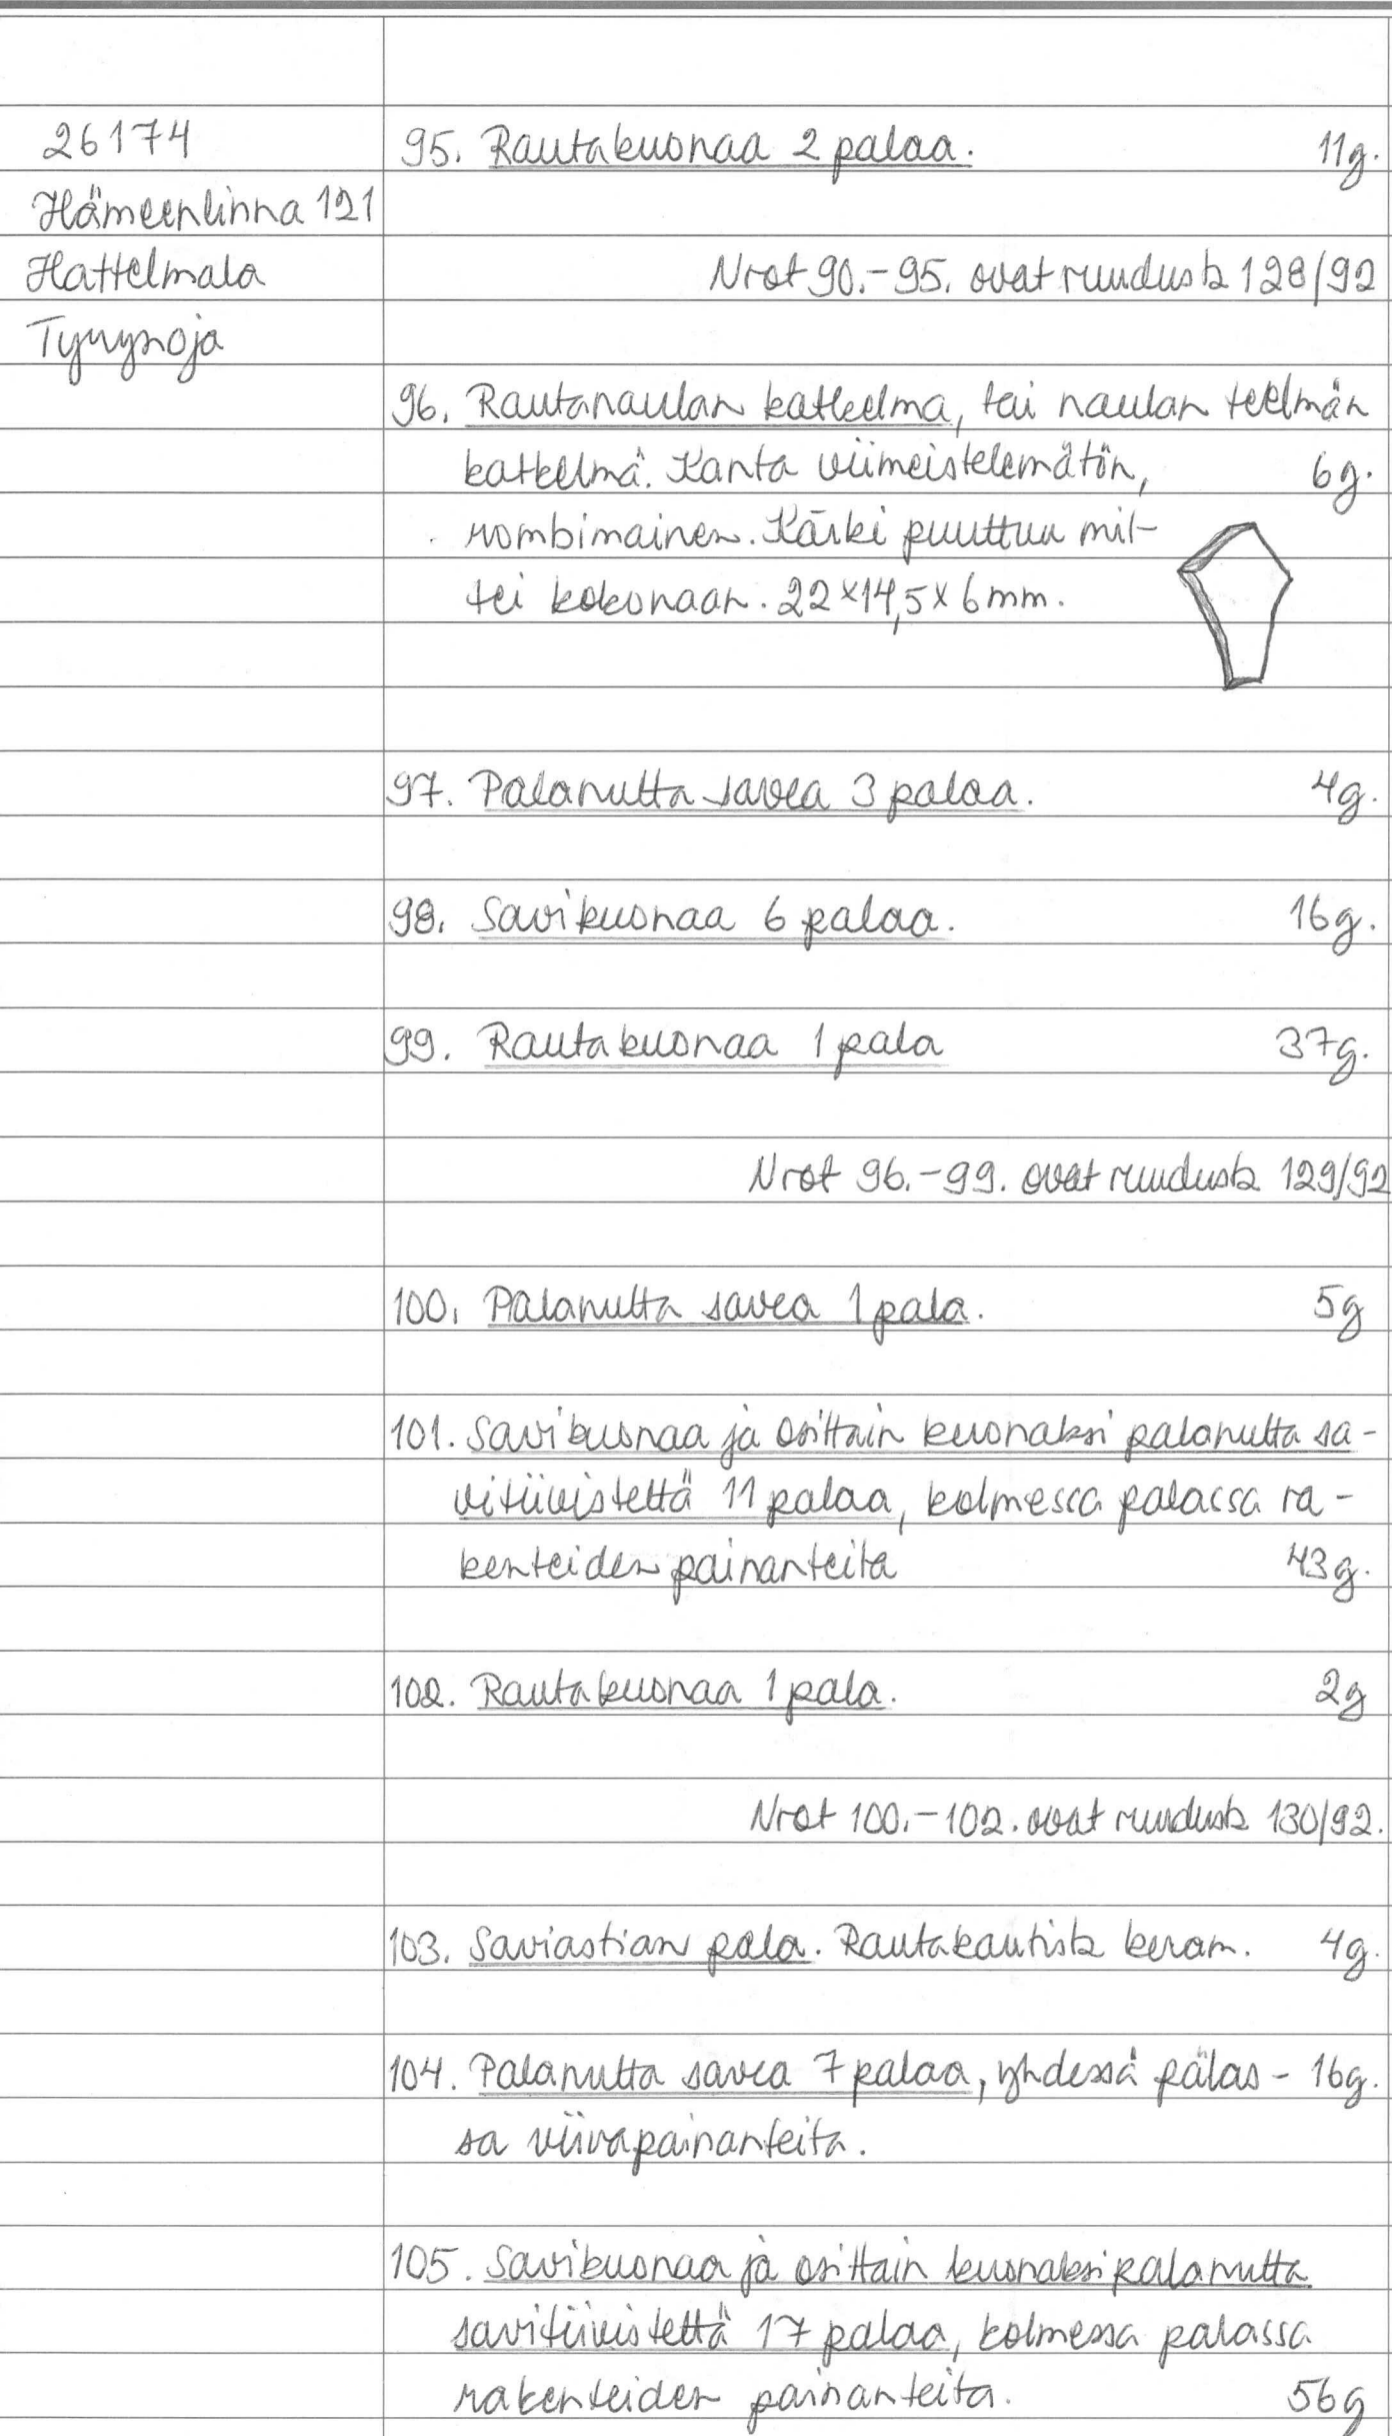 26174
Hämeenlinna 121
Hattelmala
Tyrynoja
95. Rautakuonaa 2 palaa. 11g.
Nrot 90.-95. ovat ruudusta 128/92
96. Rautanaulan katkelma, tai naulan teelmän
katkelma. Kanta viimeistelemätön, 6g.
rombimainen. Kärki puuttuu mil-
tei kokonaan. 22x14,5x6mm.
97. Palanutta savea 3 palaa. 4g.
98. Savikuonaa 6 palaa. 16g.
99. Rautakuonaa 1 pala 37g.
Nrot 96.-99. ovat ruudusta 129/92
100. Palanutta savea 1 pala. 5g
101. Savikuonaa ja osittain kuonaksi palanutta sa-
vitiivistettä 11 palaa, kolmessa palassa ra-
kenteiden painanteita 43g.
102. Rautakuonaa 1 pala. 2g
Nrot 100.-102. ovat ruudusta 130/92.
103. Saviastian pala. Rautakautista keram. 4g.
104. Palanutta savea 7 palaa, yhdessä palas- 16g.
sa viivapainanteita.
105. Savikuonaa ja osittain kuonaksi palanutta
savitiivistettä 17 palaa, kolmessa palassa
rakenteiden painanteita. 56g